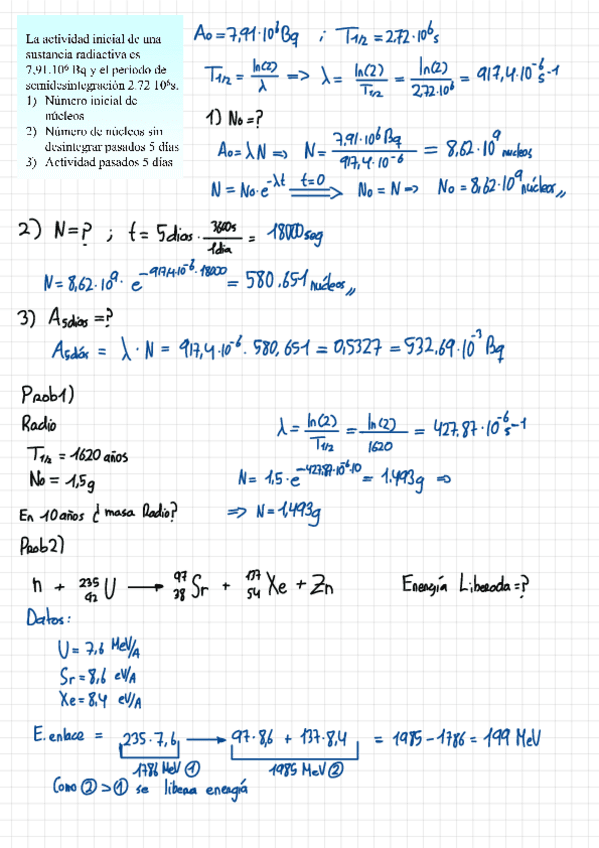 La actividad inicial de una
sustancia radiactiva es
7,91.10⁶ Bq y el periodo de
semidesintegración 2.72 10⁶s.
1) Número inicial de
núcleos
2) Número de núcleos sin
desintegrar pasados 5 días
3) Actividad pasados 5 días
A₀ = 7,91·10⁶ Bq ; T₁/₂ = 2.72·10⁶ s
T₁/₂ = ln(2)/λ => λ = ln(2)/T₁/₂ = ln(2)/2,72·10⁶ = 917,4·10⁻⁶ s⁻¹
1) N₀ = ?
A₀ = λN => N = 7,91·10⁶ Bq/917,4·10⁻⁶ = 8,62·10⁹ nucleos
N = N₀·e^-λt t=0 => N₀ = N => N₀ = 8,62·10⁹ núcleos,,
2) N = ? ; t = 5 dias · 3600s/1dia = 18000 seg
N = 8,62·10⁹ · e^-917,4·10⁻⁶·18000 = 580.651 núcleos,,
3) A5dias = ?
A5días = λ · N = 917,4·10⁻⁶ · 580,651 = 0,5327 = 532,69·10⁻³ Bq
Prob1)
Radio
T₁/₂ = 1620 años
N₀ = 1,5g
En 10 años ¿masa Radio?
λ = ln(2)/T₁/₂ = ln(2)/1620 = 427,87·10⁻⁶ s⁻¹
N = 1,5·e^-427,87·10⁻⁶·10 = 1.493g =>
=> N = 1,493g
Prob2)
n + ²³⁵₉₂U → ⁹⁷₃₈Sr + ¹³⁷₅₄Xe + Zn Energía Liberada = ?
Datos:
U = 7,6 MeV/A
Sr = 8,6 eV/A
Xe = 8,4 eV/A
E. enlace = 235·7,6 → 97·8,6 + 137·8,4 = 1985 - 1786 = 199 MeV
1786 MeV ① 1985 MeV ②
Como ② > ① se libera energía